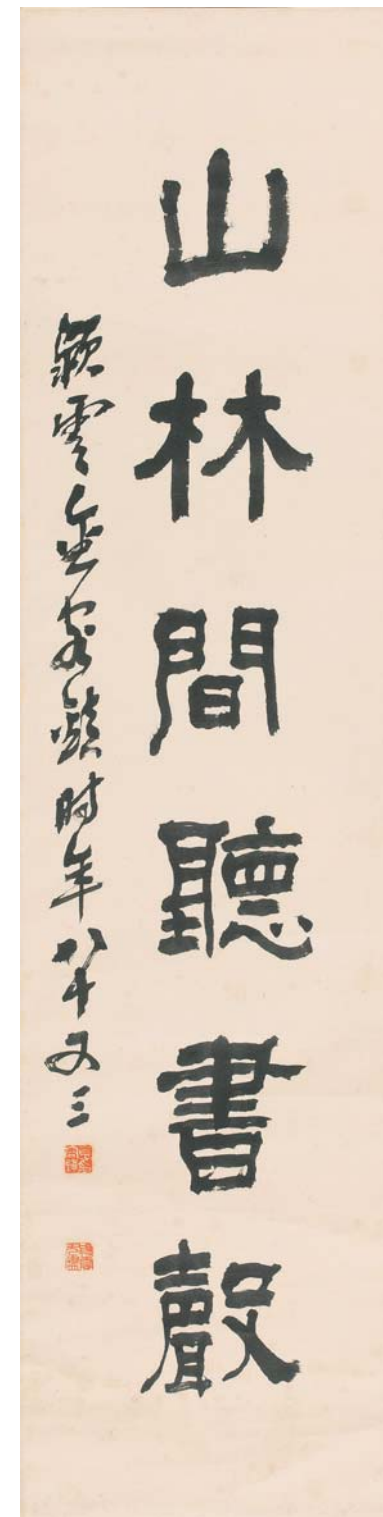 山林間聽書聲
穎雲金容鎭時年八十又三